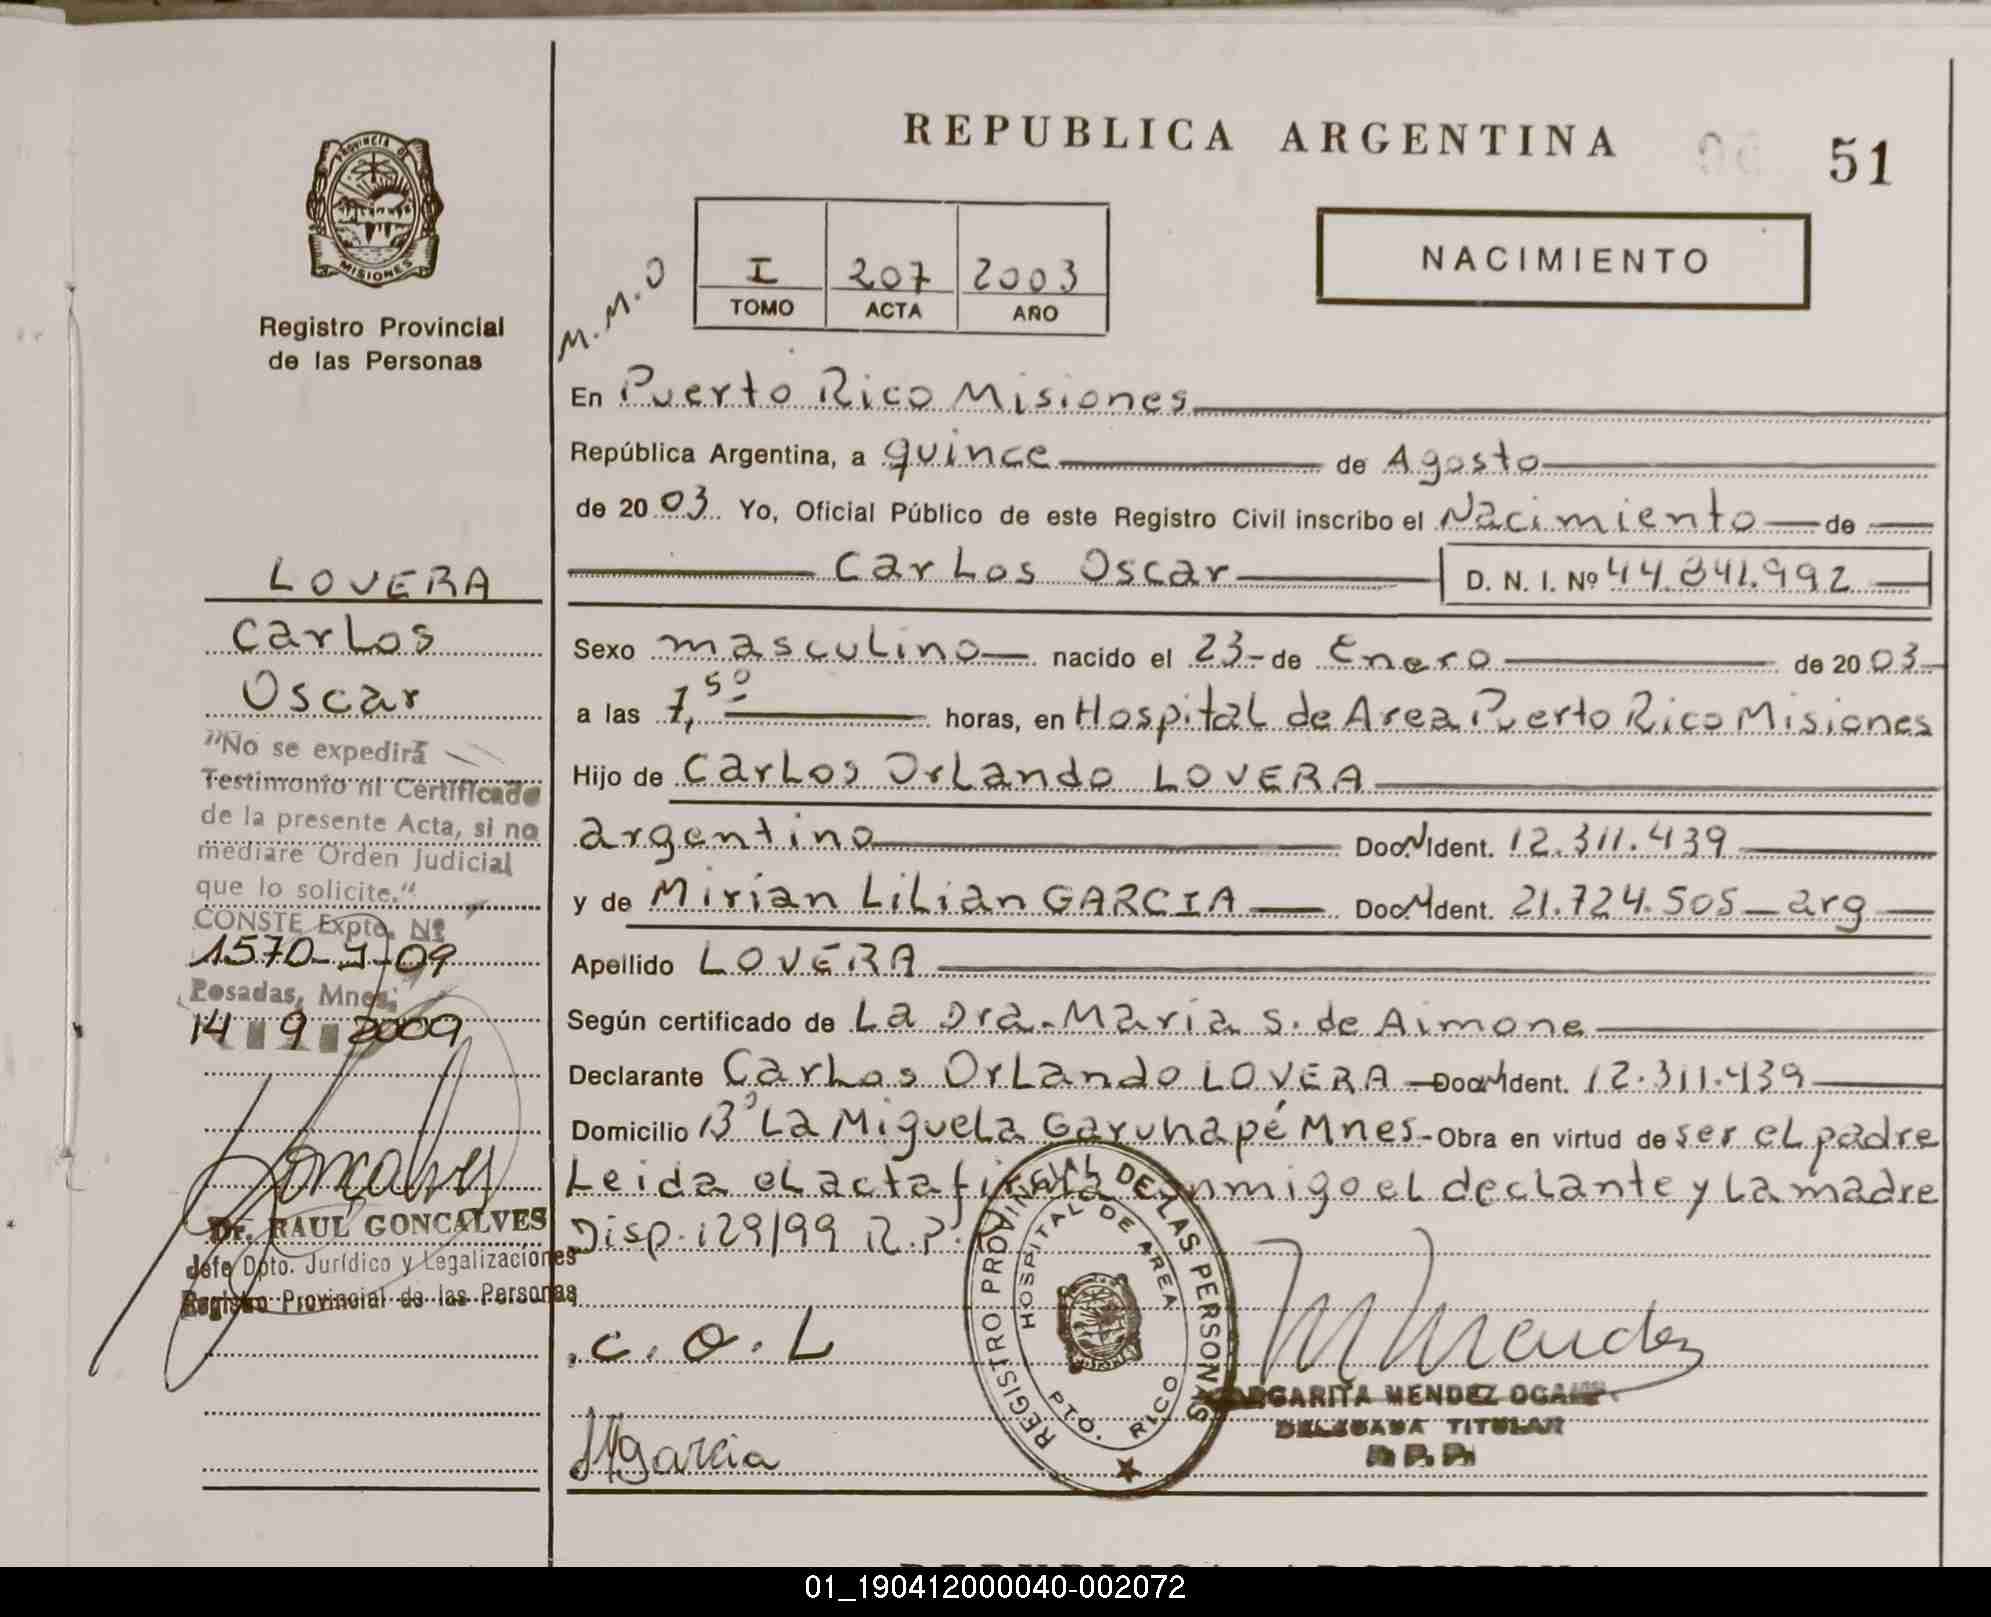 REPUBLICA ARGENTINA
51
PROVINCIA DE
MISIONES
Registro Provincial
de las Personas
NACIMIENTO
M.M.O
I 207 2003
TOMO ACTA AÑO
En Puerto Rico Misiones
República Argentina, a quince de Agosto
de 2003 Yo, Oficial Público de este Registro Civil inscribo el Nacimiento de
Carlos Oscar D. N. I. Nº 44.841.992
Sexo masculino nacido el 23 de Enero de 2003
a las 7,50 horas, en Hospital de Area Puerto Rico Misiones
Hijo de Carlos Orlando LOVERA
argentino Doc.N Ident. 12.311.439
y de Mirian Lilian GARCIA Doc.N Ident. 21.724.505 - arg
Apellido LOVERA
Según certificado de La Dra. Maria S. de Aimone
Declarante Carlos Orlando LOVERA Doc.N Ident. 12.311.439
Domicilio Bº La Miguela Garuhapé Mnes. Obra en virtud de ser el padre
Leida el acta firma conmigo el declante y la madre
Disp. 129/99 R.P.
C.O.L
MGarcia
M Mendez
MARGARITA MENDEZ
DELEGADA TITULAR
REGISTRO PROVINCIAL DE LAS PERSONAS
HOSPITAL DE AREA
PTO. RICO
LOVERA
Carlos
Oscar
"No se expedirá
Testimonio ni Certificado
de la presente Acta, si no
mediare Orden Judicial
que lo solicite."
CONSTE Expte. Nº
1570-J-09
Posadas, Mnes,
14 9 2009
Goncalves
Dr. RAUL GONCALVES
Jefe Dpto. Jurídico y Legalizaciones
Registro Provincial de las Personas
01_190412000040-002072